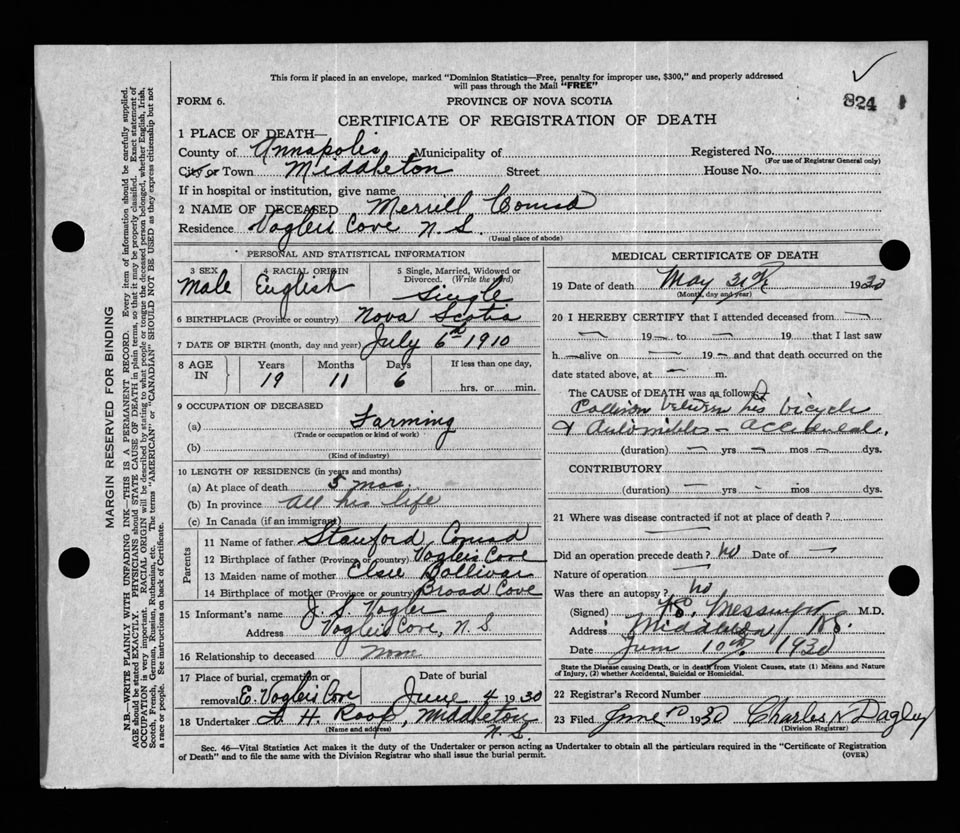 This form if placed in an envelope, marked "Dominion Statistics—Free, penalty for improper use, $300," and properly addressed
will pass through the Mail "FREE"
824
FORM 6.
PROVINCE OF NOVA SCOTIA
CERTIFICATE OF REGISTRATION OF DEATH
1 PLACE OF DEATH—
County of Annapolis Municipality of Registered No.
(For use of Registrar General only)
City or Town Middleton Street House No.
If in hospital or institution, give name
2 NAME OF DECEASED Merrill Conrad
Residence Voglers Cove N.S.
(Usual place of abode)
PERSONAL AND STATISTICAL INFORMATION
3 SEX 4 RACIAL ORIGIN 5 Single, Married, Widowed or
Divorced. (Write the word)
Male English Single
6 BIRTHPLACE (Province or country) Nova Scotia
7 DATE OF BIRTH (month, day and year) July 6th 1910
8 AGE IN Years Months Days If less than one day,
19 11 6 hrs. or min.
9 OCCUPATION OF DECEASED
(a) Farming
(Trade or occupation or kind of work)
(b)
(Kind of industry)
10 LENGTH OF RESIDENCE (in years and months)
(a) At place of death 5 mos.
(b) In province all his life
(c) In Canada (if an immigrant)
Parents
11 Name of father Stanford Conrad
12 Birthplace of father (Province or country) Voglers Cove
13 Maiden name of mother Elsie Bolliver
14 Birthplace of mother (Province or country) Broad Cove
15 Informant's name J. S. Vogler
Address Voglers Cove, N.S
16 Relationship to deceased
17 Place of burial, cremation or Date of burial
removal E. Voglers Cove June 4 1930
18 Undertaker H. Roop, Middleton
N.S.
(Name and address)
MEDICAL CERTIFICATE OF DEATH
19 Date of death May 31 1930
(Month, day and year)
20 I HEREBY CERTIFY that I attended deceased from —
— 19 — to — 19 that I last saw
h — alive on — 19 — and that death occurred on the
date stated above, at — m.
The CAUSE of DEATH was as follows:
Collision between his bicycle
& Automobile – accidental.
(duration) — yrs — mos — dys.
CONTRIBUTORY
(duration) — yrs - mos dys.
21 Where was disease contracted if not at place of death?
—
Did an operation precede death? no Date of —
Nature of operation —
Was there an autopsy? no
(Signed) Messinger M.D.
Address Middleton NS.
Date June 10th 1930
State the Disease causing Death, or in death from Violent Causes, state (1) Means and Nature
of Injury, (2) whether Accidental, Suicidal or Homicidal.
22 Registrar's Record Number
23 Filed June 10 1930 Charles N Dagley
(Division Registrar)
Sec. 46—Vital Statistics Act makes it the duty of the Undertaker or person acting as Undertaker to obtain all the particulars required in the "Certificate of Registration
of Death" and to file the same with the Division Registrar who shall issue the burial permit.
(OVER)
MARGIN RESERVED FOR BINDING
N.B.—WRITE PLAINLY WITH UNFADING INK—THIS IS A PERMANENT RECORD. Every item of information should be carefully supplied.
AGE should be stated EXACTLY. PHYSICIANS should STATE CAUSE OF DEATH in plain terms, so that it may be properly classified. Exact statement of
OCCUPATION is very important. RACIAL ORIGIN will be described by stating to what people or tongue the deceased person belonged, whether English, Irish,
Scotch, French, German, Russian, Ruthenian, etc. The terms "AMERICAN" or "CANADIAN" SHOULD NOT BE USED as they express citizenship but not
a race or people. See instructions on back of Certificate.